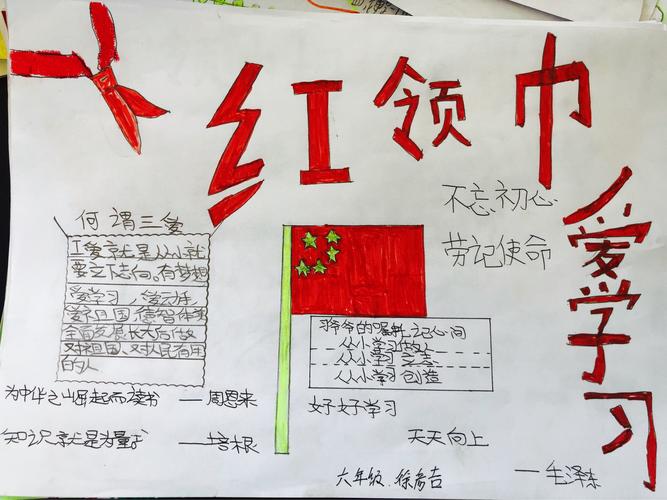 红领巾
爱学习
不忘初心
劳记使命
何谓三爱
爱就是从小就
要立下志向。有梦想
爱学习,爱劳动
爱祖国,德智体美
全面发展长大后做
对祖国、对人民有用
的人
习爷爷的嘱咐记心间
从小学习做人
从小学习立志
从小学习创造
为中华之崛起而读书 ——周恩来
知识就是力量 ——培根
好好学习
天天向上
——毛泽东
六年级